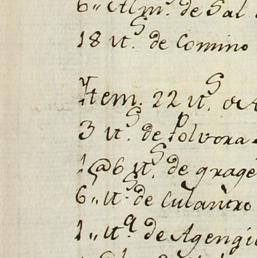 6,, Alm.s de Sal
18 lt.s de Comino
Item. 22 lt.s
3 lt.s de Polvora
1@6 lt.s de grage
6,, lt.s de Culantro
1,, lt.a de Agengi